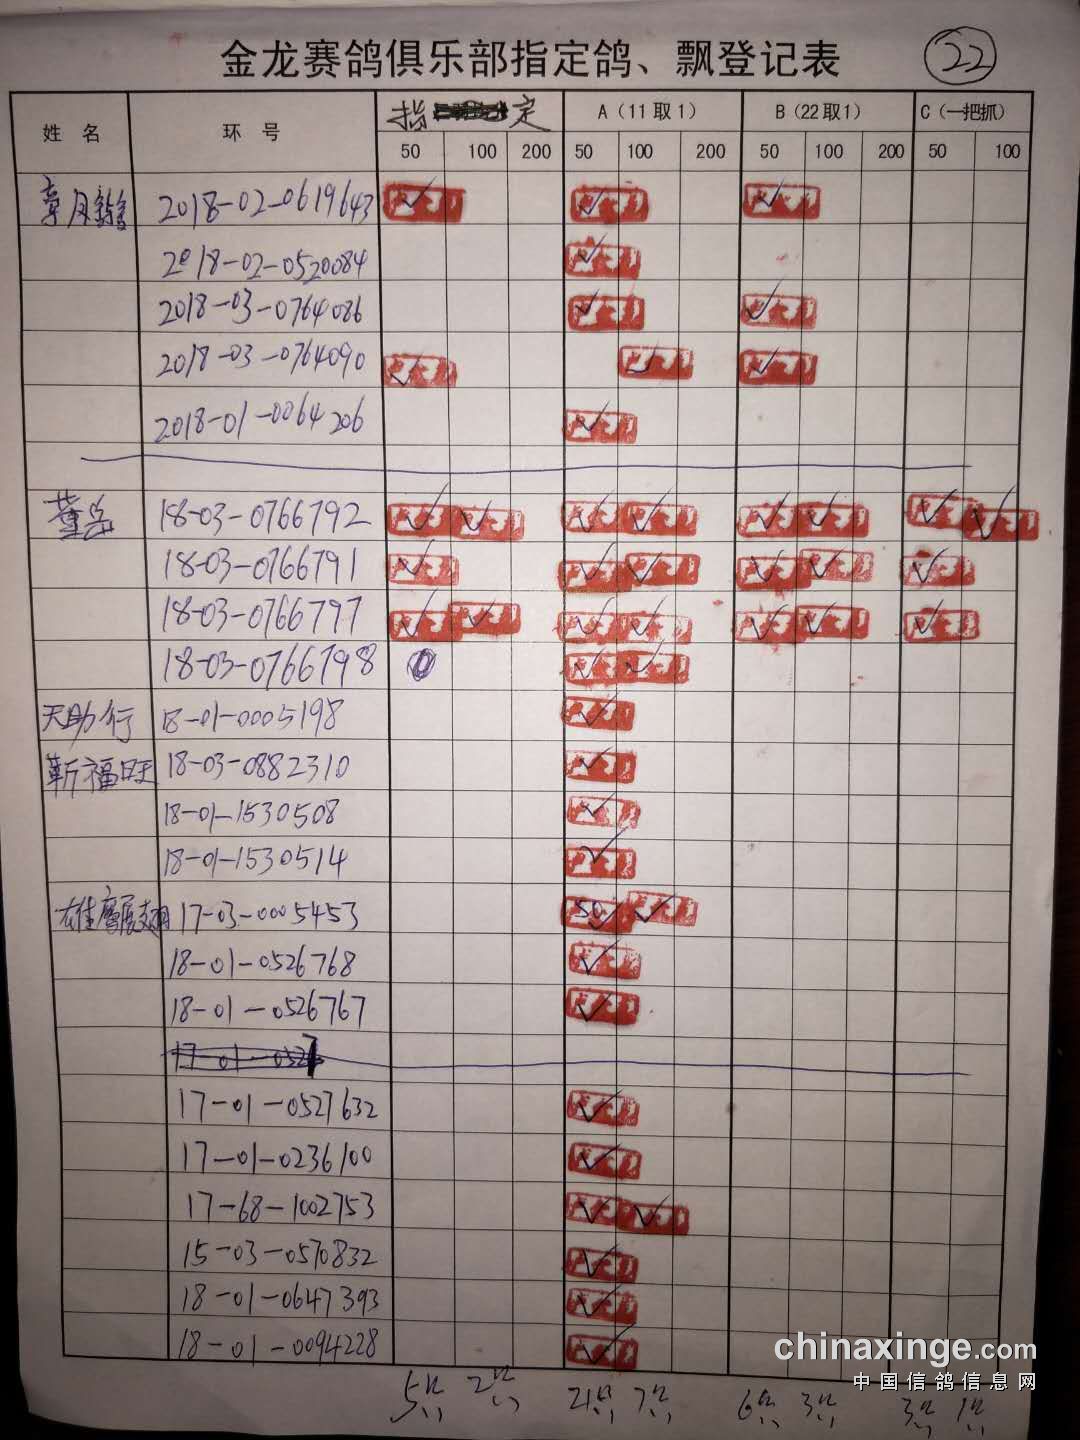 金龙赛鸽俱乐部指定鸽、飘登记表 22
姓 名 环 号 指 定 A(11取1) B(22取1) C(一把抓)
50 100 200 50 100 200 50 100 200 50 100
章月 2018-02-0619643
2018-02-0520084
2018-03-0764086
2018-03-0764090
2018-01-0064206
董岳 18-03-0766792
18-03-0766791
18-03-0766797
18-03-0766798
天助行 18-01-0005198
靳福旺 18-03-0882310
18-01-1530508
18-01-1530514
雄鹰展翅 17-03-0005453 50
18-01-0526768
18-01-0526767
17-01-0527632
17-01-0236100
17-68-1002753
15-03-0570832
18-01-0647393
18-01-0094228
chinaxinge.com
中国信鸽信息网
5只 2只 21只 7只 6只 3只 3只 1只